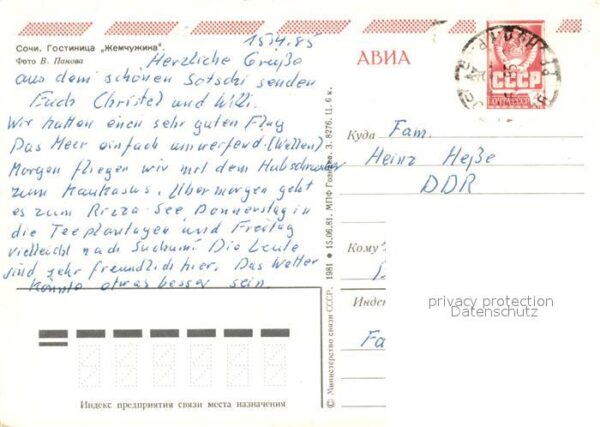 Сочи. Гостиница „Жемчужина".
Фото В. Панова
15.4.85
Herzliche Grüße
aus dem schönen Sotschi senden
Euch Christel und Willi.
Wir hatten einen sehr guten Flug
Das Meer einfach umwerfend. (Wellen)
Morgen fliegen wir mit dem Hubschrauber
zum Kaukasus. Übermorgen geht
es zum Rizza-See, Donnerstag in
die Teeplantagen und Freitag
vielleicht nach Suchumi Die Leute
sind sehr freundlich hier. Das Wetter
könnte etwas besser sein.
Индекс предприятия связи места назначения
© Министерство связи СССР. 1981 ● 15.06.81. МПФ Гознака. З. 8276. Ц. 6 к.
АВИА
СССР
Куда Fam.
Heinz Heße
DDR
Кому
Индек
Fa
privacy protection
Datenschutz